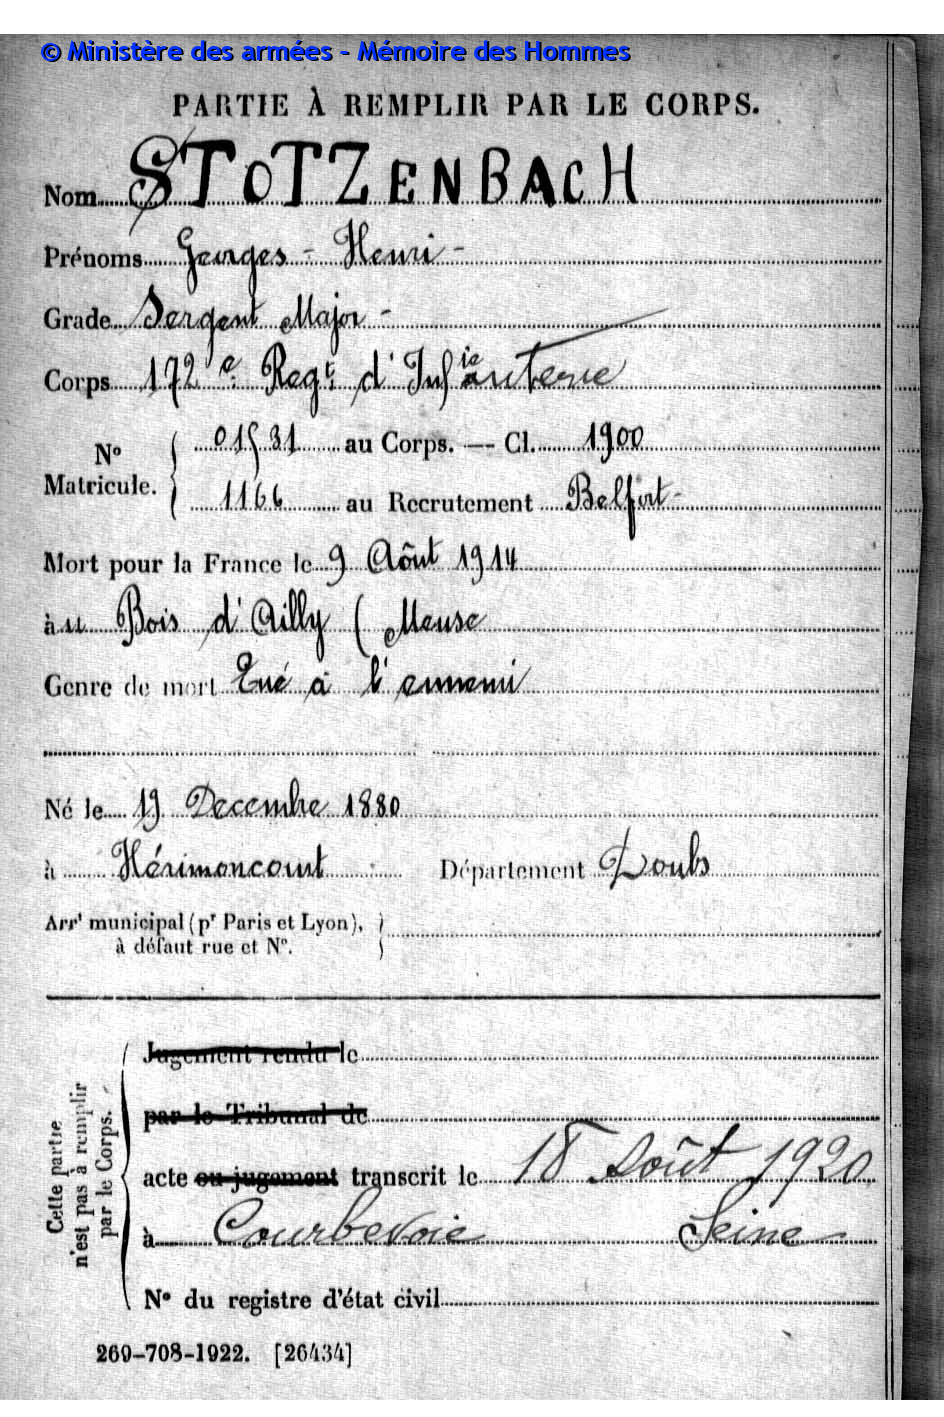 © Ministère des armées - Mémoire des Hommes
PARTIE À REMPLIR PAR LE CORPS.
Nom STOTZENBACH
Prénoms Georges - Henri -
Grade Sergent Major -
Corps 172e Regt d'Infanterie
N° Matricule. 01531 au Corps. — Cl. 1900
1166 au Recrutement Belfort -
Mort pour la France le 9 Aôut 1914
à u Bois d'Ailly (Meuse
Genre de mort Tué à l'ennemi
Né le 19 Decembre 1880
à Hérimoncourt Département Doubs
Arrt municipal (pr Paris et Lyon),
à défaut rue et N°.
Cette partie n'est pas à remplir par le Corps.
Jugement rendu le
par le Tribunal de
acte ou jugement transcrit le 18 Août 1920
à Courbevoie Seine
N° du registre d'état civil
269-708-1922. [26434]